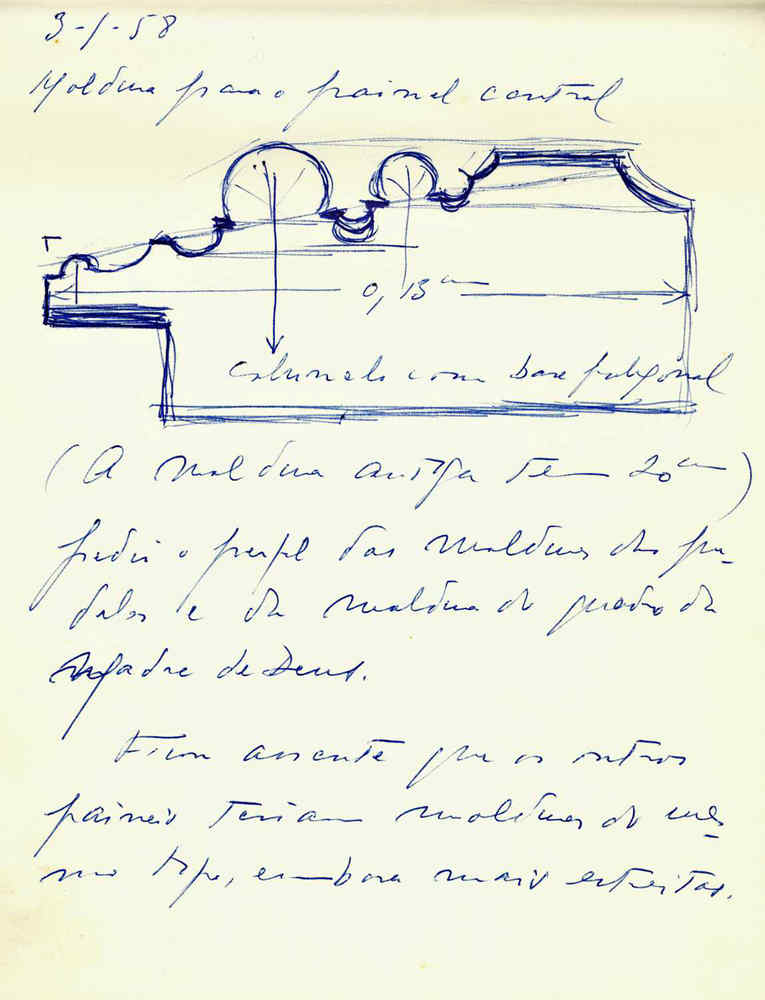 3-1-58
Moldura para o painel central
0,13 cm
Colunelo com base poligonal
(A moldura antiga tem 20 cm)
Pedi o perfil das molduras das pre-
delas e da moldura do quadro da
Madre de Deus.
Ficou assente que os outros
paineis teriam molduras do mes-
mo tipo, embora mais estreitas.